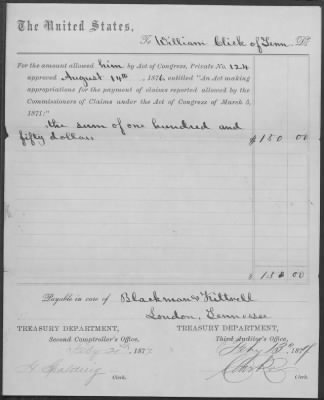 The United States,
To William Click of Tenn. Dr.
For the amount allowed him by Act of Congress, Private No. 124
approved August 14th, 1876, entitled "An Act making
appropriations for the payment of claims reported allowed by the
Commissioners of Claims under the Act of Congress of March 3,
1871:"
the sum of one hundred and
fifty dollars $150 00
$150 00
Payable in care of Blackman &
London, Tennessee
TREASURY DEPARTMENT, TREASURY DEPARTMENT,
Second Comptroller's Office, Third Auditor's Office,
Feby 1877. Feby 13th, 1877
Spalding
Clerk. Clerk.